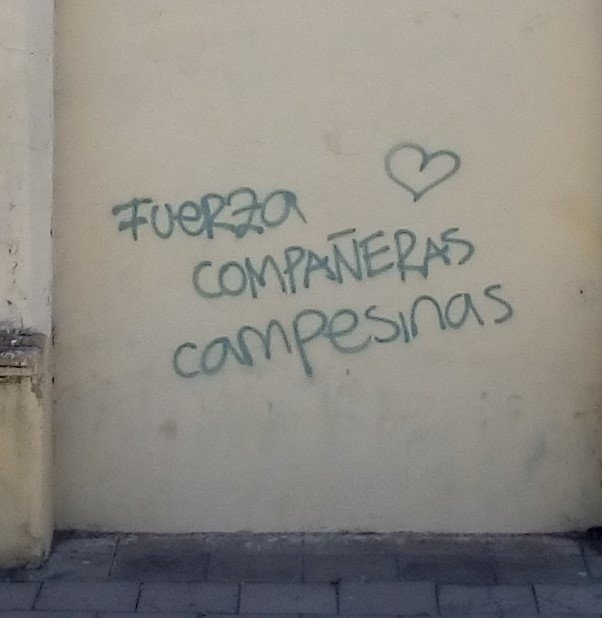 FUERZA
COMPAÑERAS
campesinas